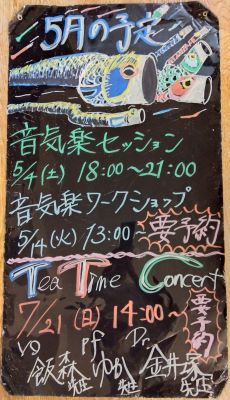 5月の予定
音気楽セッション
5/4(土) 18:00~21:00
音気楽ワークショップ
5/14(火) 13:00~ 要予約
Tea Time Concert
7/21(日) 14:00~ 要予約
Vo Pf Dr.
飯森先生 ゆか先生 金井塚先生